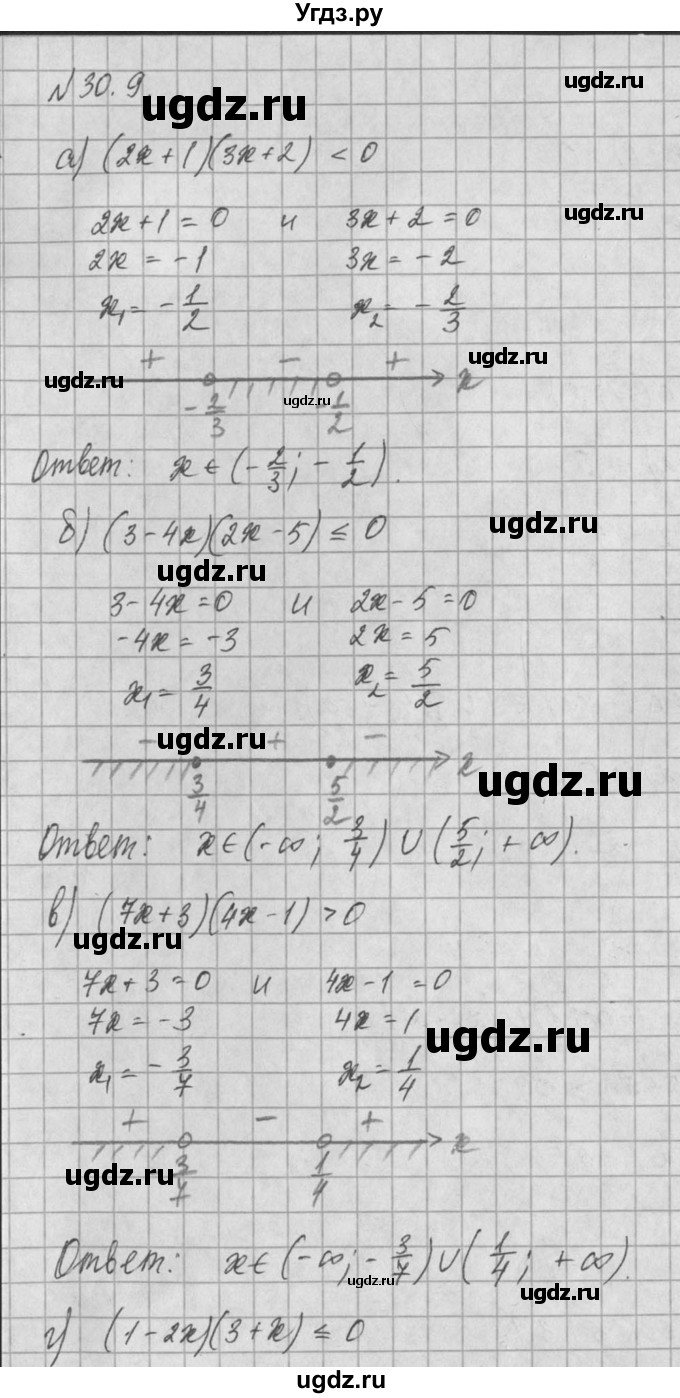 Угдз.ру
№30.9
ugdz.ru ugdz.ru
а) (2x+1)(3x+2) < 0
2x+1=0 и 3x+2=0
ugdz.ru
2x = -1 3x = -2
x₁ = -1/2 x₂ = -2/3
+ - +
ugdz.ru ugdz.ru ugdz.ru x
-2/3 -1/2
Ответ: x∈(-2/3; -1/2).
б) (3-4x)(2x-5) ≤ 0
ugdz.ru
ugdz.ru
3-4x=0 и 2x-5=0
-4x = -3 2x = 5
x₁ = 3/4 x₂ = 5/2
- + -
ugdz.ru
x ugdz.ru
3/4 5/2
Ответ: x∈(-∞; 3/4) ∪ (5/2; +∞).
в) (7x+3)(4x-1) > 0
ugdz.ru
7x+3=0 и 4x-1=0
7x = -3 4x = 1
ugdz.ru
x₁ = -3/7 x₂ = 1/4
+ - +
x
ugdz.ru
3/7 1/4
Ответ: x∈(-∞; -3/7) ∪ (1/4; +∞).
ugdz.ru ugdz.ru
г) (1-2x)(3+x) ≤ 0
ugdz.ru